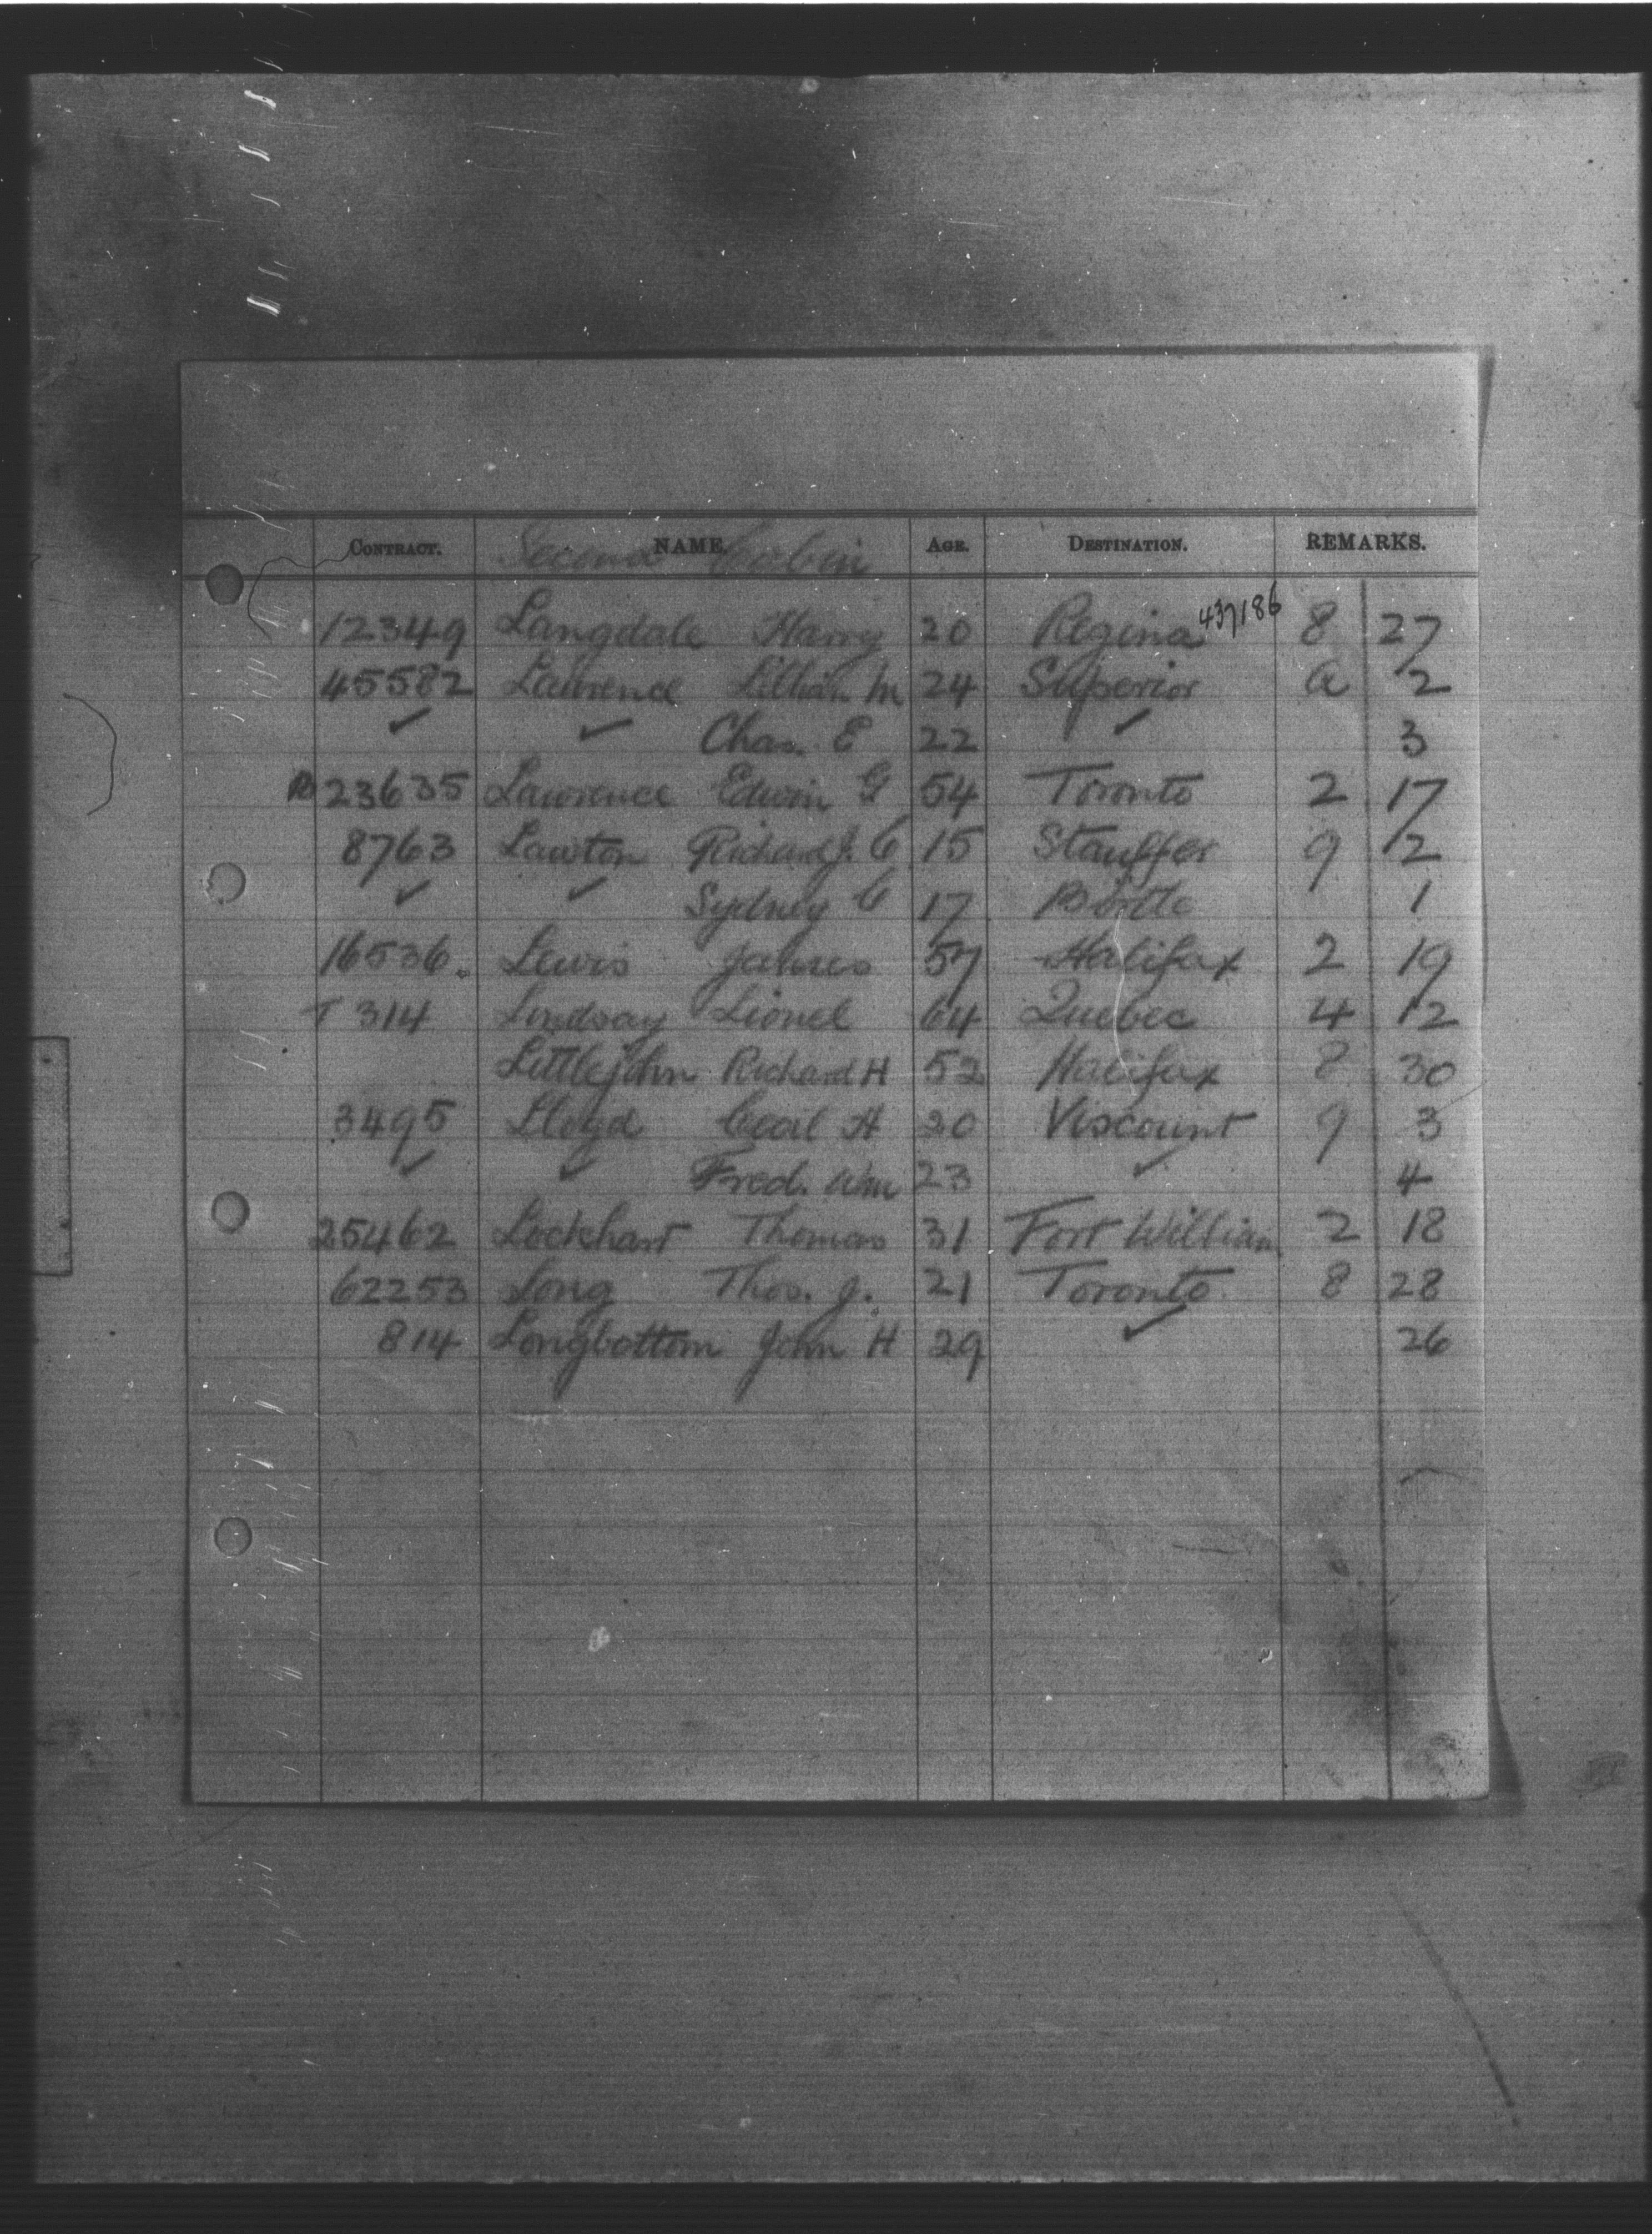 CONTRACT. NAME. AGE. DESTINATION. REMARKS.
Second Cabin
12349 Langdale Harry 20 Regina 437186 8 27
45582 Lawrence Lillian M 24 Superior a 2
✓ ✓ Chas. E 22 ✓ 3
B23635 Lawrence Edwin G 54 Toronto 2 17
8763 Lawton Richard J. C 15 Stauffer 9 2
✓ ✓ Sydney C 17 1
16536. Lewis James 57 Halifax 2 19
T 314 Lindsay Lionel 64 Quebec 4 12
Littlejohn Richard H 52 Halifax 8 30
3495 Lloyd Cecil H 20 Viscount 9 3
✓ ✓ Fred. Wm 23 ✓ 4
25462 Lockhart Thomas 31 Fort William 2 18
62253 Long Thos. J. 21 Toronto. 8 28
814 Longbottom John H 29 ✓ 26